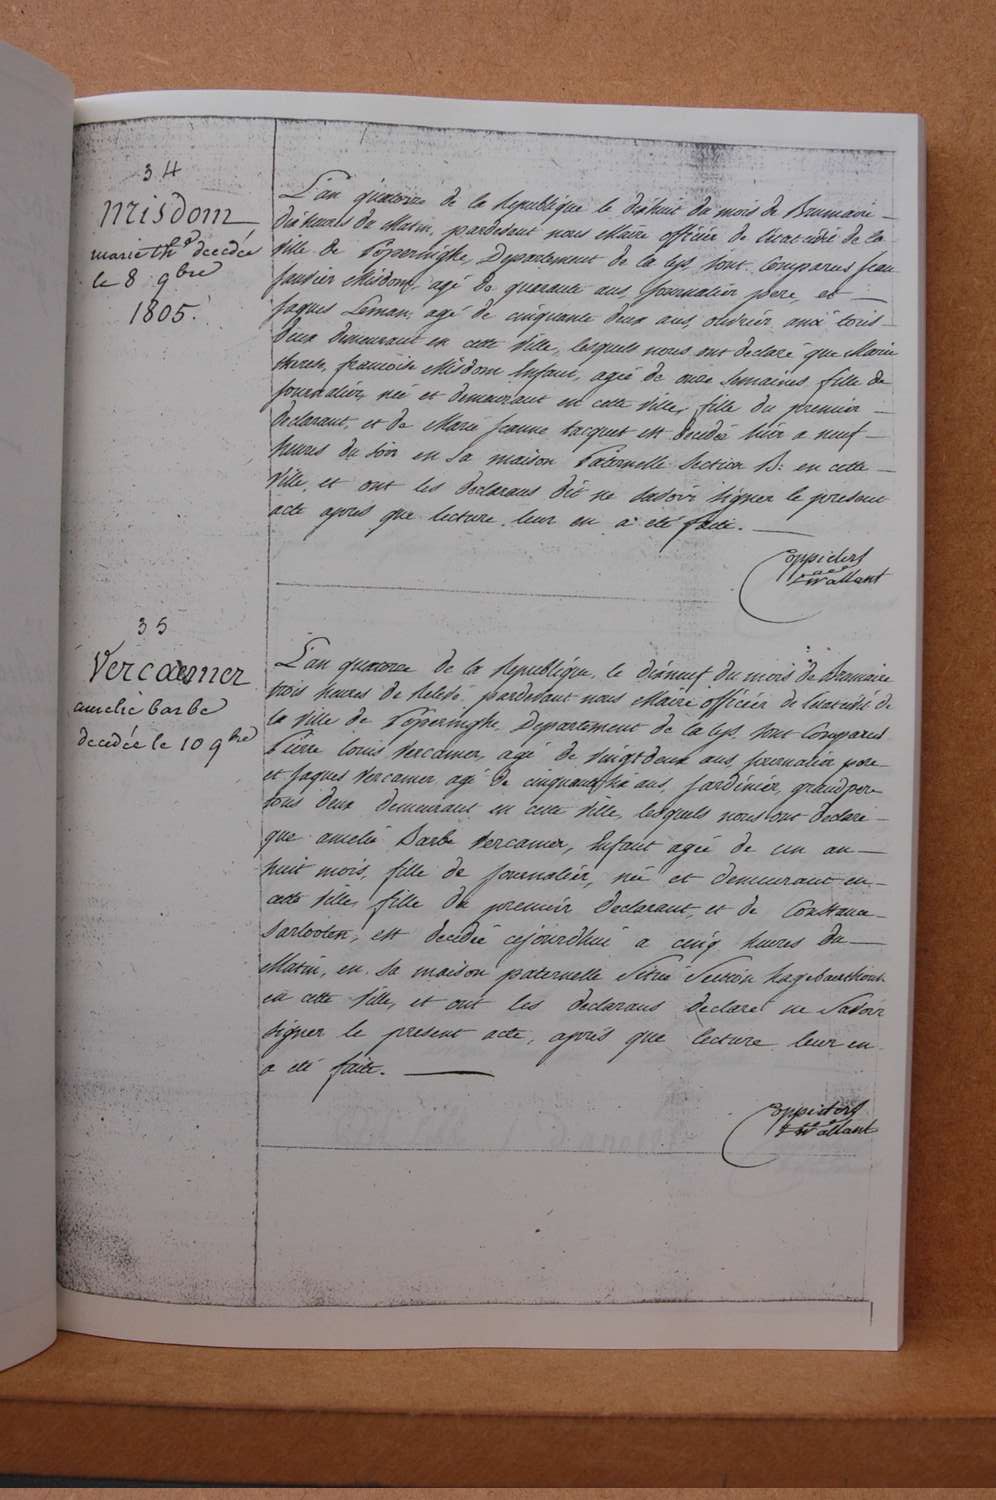 34
Misdom
marie Th.e decedée
le 8 9bre
1805.
L'an quatorze de la Republique le dixhuit du mois de Brumaire –
dixheures du Matin, pardevant nous Maire officier de l'etat civil de la
Ville de Poperinghe, Departement de la Lys, sont Comparus Jean
Misdom, agé de quarante ans, Journalier pere, et —
Jaques Leman, agé de cinquante deux ans, ouvrier, aux tous –
deux demeurant en cette Ville, lesquels nous ont declaré que Marie
therese, francoise Misdom Enfant, agée de onze Semaines fille de
Journalier, née et demeurant en cette Ville, fille du premier –
declarant, et de Marie Jeanne tacquet est decedée hier a neuf –
heures du soir en sa maison Paternelle Section B: en cette –
Ville, et ont les declarans dit ne savoir signer le present
acte apres que lecture leur en a été faite. —
35
Vercaemer
amelie barbe
decedée le 10 9bre
L'an quatorze de la Republique, le dixneuf du mois de Brumaire
trois heures de Relevé, pardevant nous Maire officier de l'etat civil de
la Ville de Poperinghe, Departement de la Lys, sont Comparus
Pierre Louis Vercamer, agé de Vingtdeux ans, Journalier pere
et Jaques Vercamer agé de cinquante six ans, Jardinier, grandpere
tous deux demeurant en cette Ville, lesquels nous ont declaré –
que amelie Barbe Vercamer, Enfant agée de un an —
huit mois, fille de Journalier, née et demeurant en –
cette Ville, fille du premier Declarant, et de Constance –
Sarlooten, est decedée cejourdhui a cinq heures du —
Matin, en sa maison paternelle Située Section
en cette Ville, et ont les declarans declaré ne Savoir
signer le present acte, après que lecture leur en
a été faite. —